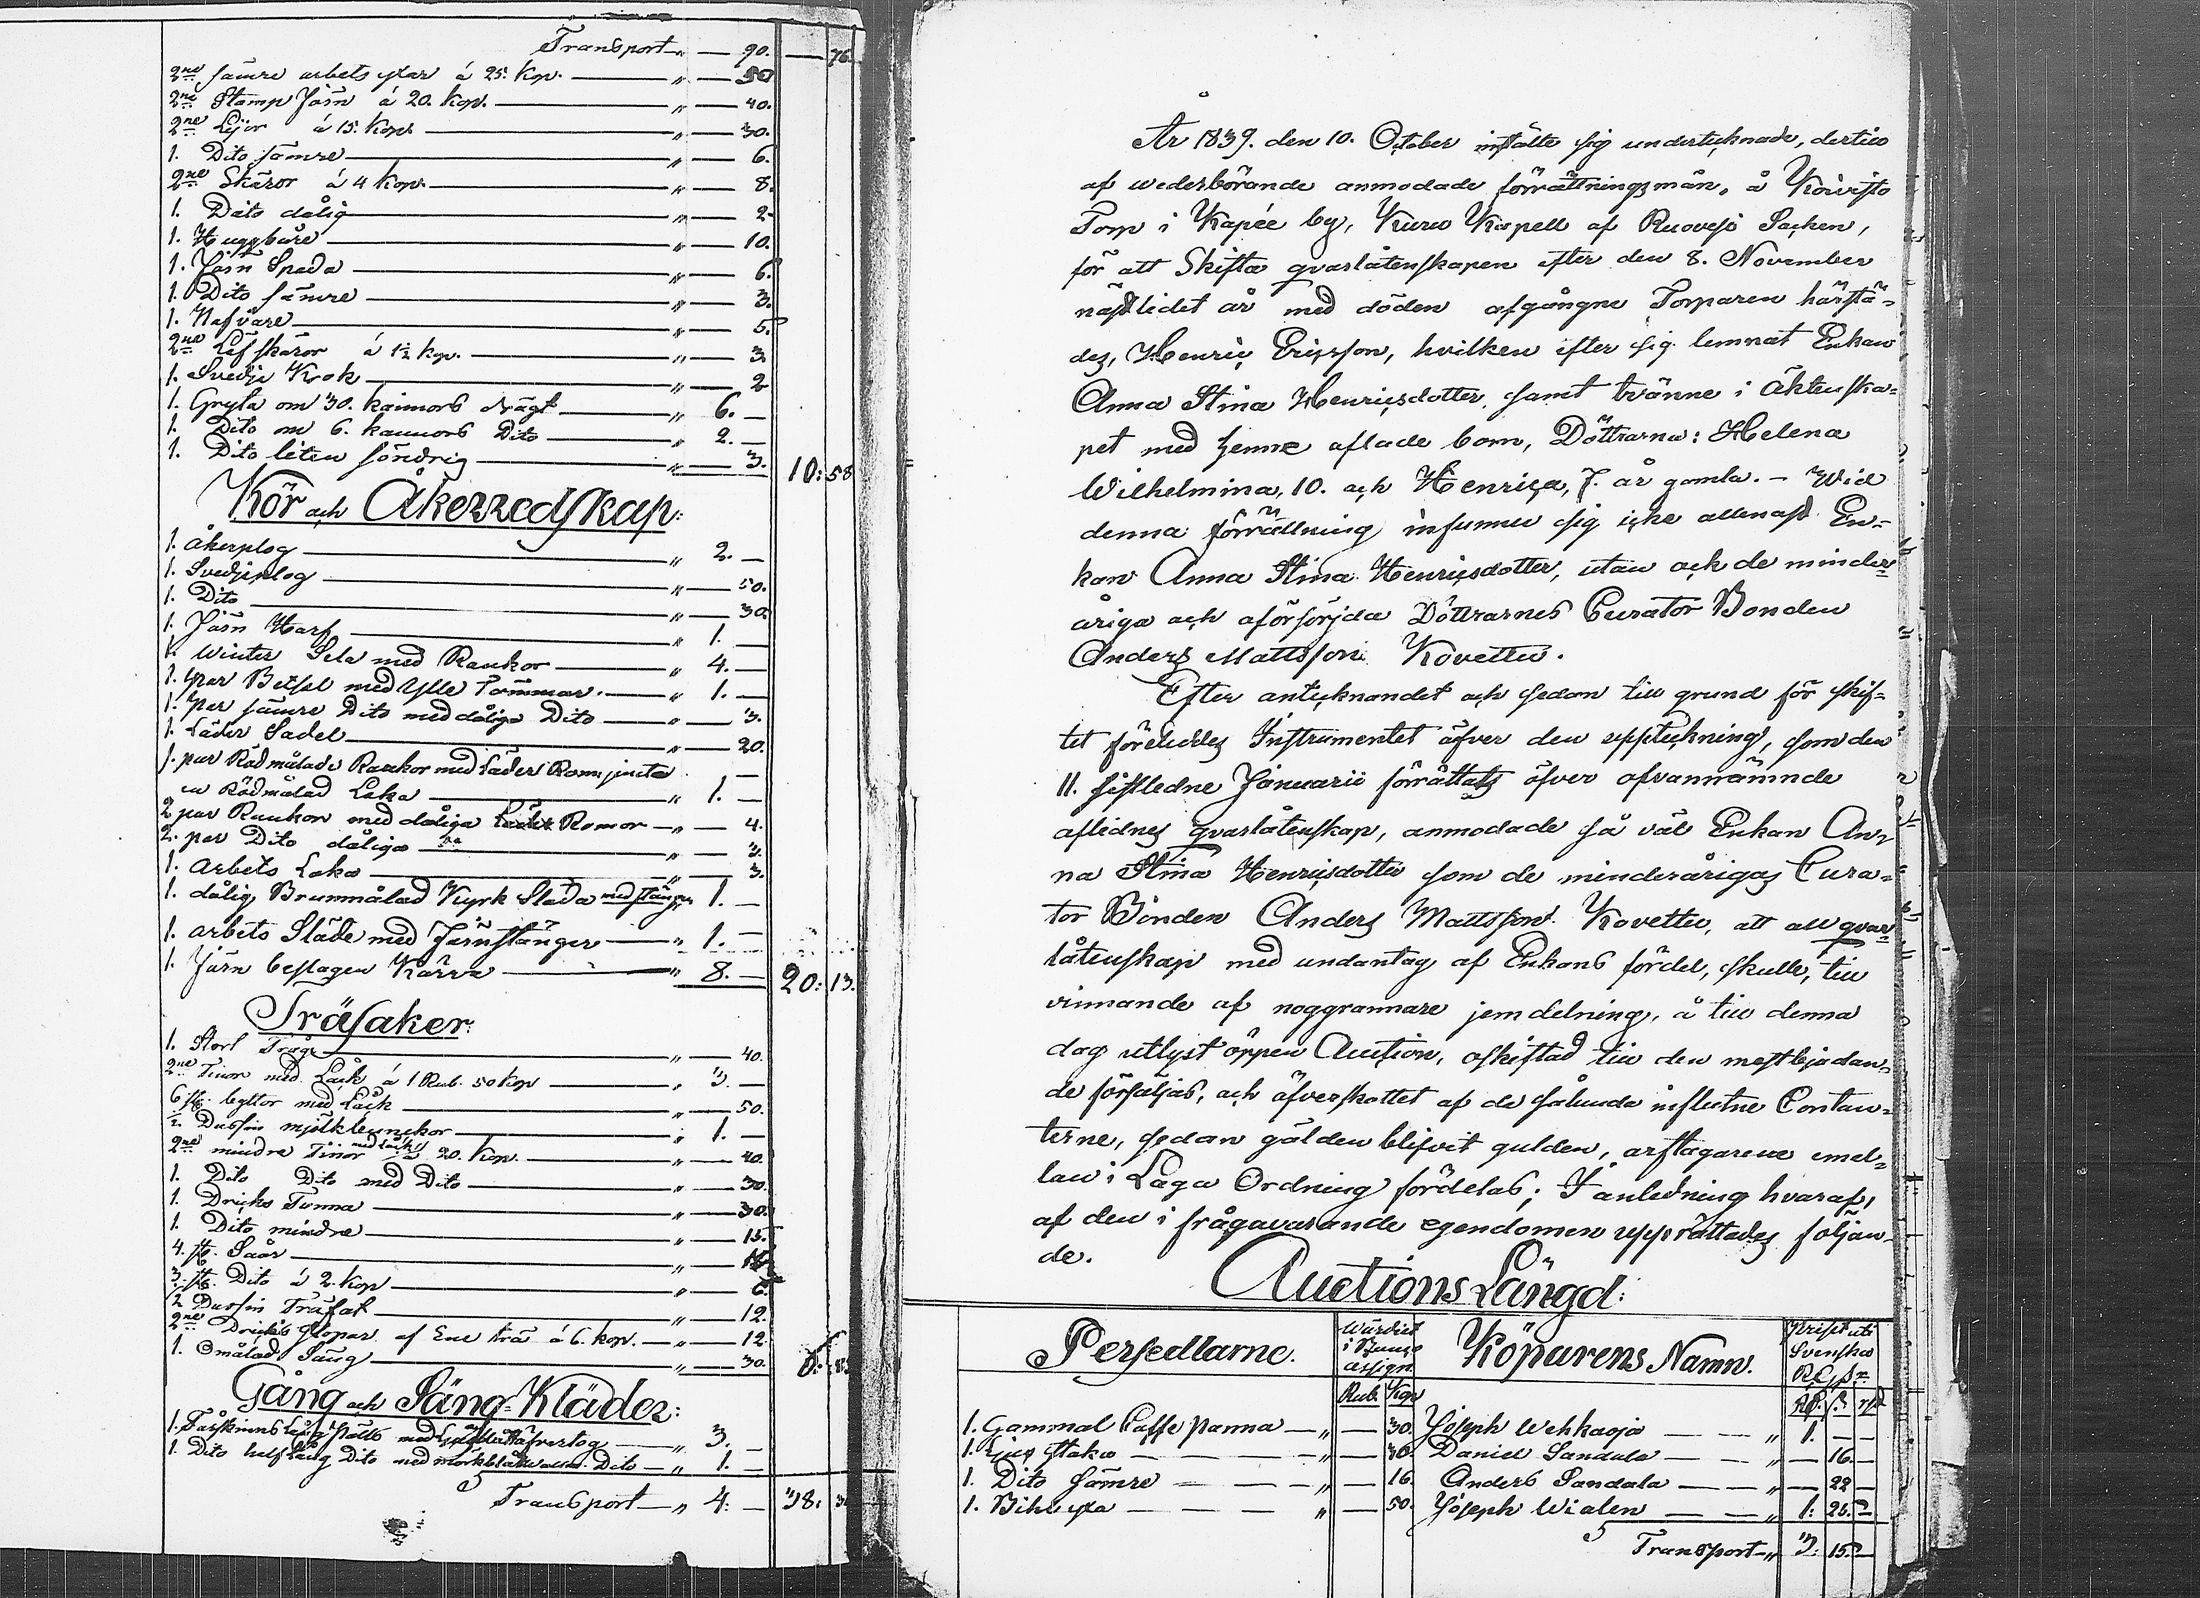 Transport „ — 90. — 76.
2ne sämre arbets yxar á 25. Kop. „ — 50
2ne Stamp Järn á 20. Kop. „ — 40.
2ne Lijor á 15. Kop. „ — 30.
1. Dito sämre „ — 6.
2ne Skäror á 4 Kop. „ — 8.
1. Dito dålig „ — 2
1. Huggbåre „ — 10.
1. Järn Spada „ — 6.
1. Dito sämre „ — 3.
1. Nafvare „ — 5.
2ne Löfskäror á 1½ kop. „ — 3
1. Svedje Krok „ — 2
1. Gryta om 30. kannors drägt „ 6. —
1. Dito om 6. kannors Dito „ 2. —
1. Dito liten söndrig „ — 3. 10: 58
Kör och Åkerredskap:
1. Åkerplog „ 2. —
1. Svedjeplog „ — 50.
1. Dito „ — 30.
1. Järn Harf „ 1. —
1. Winter Sela med Rankor „ 4. —
1. par Betsel med Ylle Tömmar „ 1. —
1. par sämre Dito med dåliga Dito „ — 3.
1. Läder Sadel „ — 20.
1. par Rödmålade Rankor med Läder Romor jemte —
en Rödmålad Loka „ 1. —
2 par Rankor med dåliga Läder Romor „ — 4.
2. par Dito dåliga „ — 3.
1. Arbets Loka „ — 3.
1. dålig Brunmålad Kyrk Släda med stänger 1. —
1. arbets Släde med Järnstänger „ 1. —
1. Järn beslagen Kärra „ 8. — 20: 13.
Träsaker:
1. Stort Tråg „ — 40.
2ne Tinor med Låck á 1 Rub. 50 kop „ 3. —
6 st. byttor med Låck „ — 50.
½ Dussin mjölkbunckor „ 1. —
2ne mindre Tinor med Låck á 20. Kop. „ — 40.
1. Dito Dito med Dito „ — 30.
1. Dricks Tunna „ — 30.
1. Dito mindre „ — 15.
4. st. Såar „ —
3. st. Dito á 2. Kop „ — 6.
2 Dussin Träfat „ — 12.
2ne Dricks Stopar af Ene trä á 6. kop. „ — 12
1. Omålad Säng „ — 30.
Gång och Säng-Kläder:
1. Fårskinns „ 3. —
1. Dito half lång Dito med Dito „ 1. —
Transport „ 4: — 38:
År 1839. den 10. October instälte sig undertecknade, dertill
af wederbörande anmodade förrättningsmän, å Koivisto
Torp i Kapée by, Kuru Kapell af Ruovesi Socken,
för att Skifta qvarlåtenskapen efter den 8. November
nästlidet år med döden afgångne Torparen härstä-
des, Henric Ericsson, hvilken efter sig lemnat Enkan
Anna Stina Henricsdotter, samt tvänne i Äktenska-
pet med henne aflade barn, Döttrarna: Helena
Wilhelmina, 10. och Henrica, 7. år gamla. — Wid
denna förrättning infunnu sig icke allenast En-
kan Anna Stina Henricsdotter, utan och de minder-
åriga och oförsörjda Döttrarnes Curator Bonden
Anders Mattsson Kovettu.
Efter antecknandet och sedan till grund för skif-
tet förelades Instrumentet öfver den uppteckning, som den
11. sistledne Januarii förrättats öfver ofvannämnde
aflidnes qvarlåtenskap, anmodade så väl Enkan An-
na Stina Henricsdotter som de minderårigas Cura-
tor Bonden Anders Mattsson Kovettu, att all qvar-
låtenskap med undantag af Enkans fördel, skulle, till
vinnande af noggrannare jemdelning, å till denna
dag utlyst öppen Auction, oskiftad till den mestbjudan-
de försäljas, och öfverskottet af de sålunda influtne Contan-
terne, sedan gälden blifvit gulden, arftagarene emel-
lan i Laga Ordning fördelas; I anledning hvaraf,
af den i frågavarande egendomen upprättades följan-
de.
Auctions Längd:
Persedlarne. Wärdert i Banco assign. Köparens Namn. Kriptuti Svenska
Rub. Kop
1. Gammal Caffe panna „ — 30. Joseph Wehkaoja „ 1. — —
1. Ljus staka „ — 30. Daniel Sandala „ — 16. —
1. Dito sämre „ — 16. Anders Sandala „ — 22 —
1. Bihl yxa „ — 50. Joseph Wialen „ 1: 25. —
Transport „ 3: 15. —